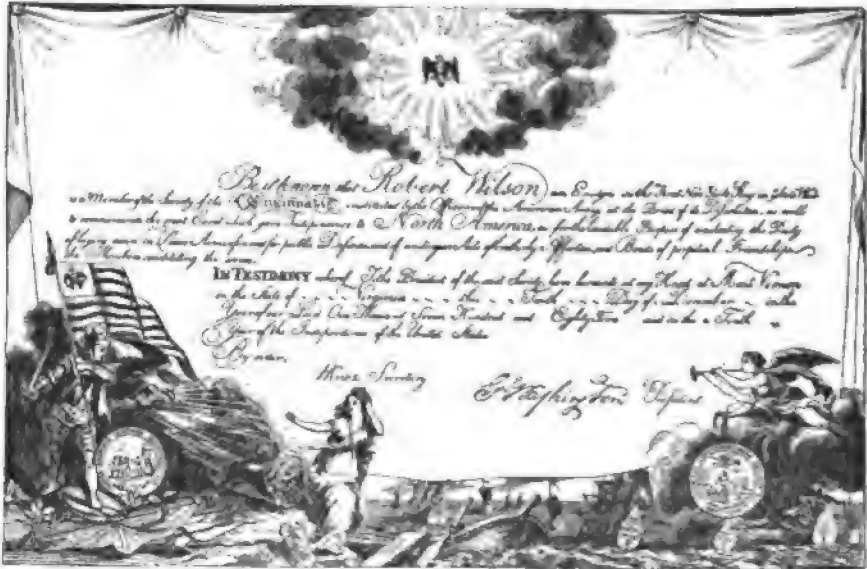 Be it known that Robert Wilson an Ensign in the First New York
is a Member of the Society of the Cincinnati instituted by the Officers of the American Army at the Period of its Dissolution, as well
to commemorate the great Event which gave Independence to North America, as for the laudable Purpose of inculcating the Duty
of laying down in Peace Arms assumed for public Defence and of uniting in Acts of brotherly Affection and Bonds of perpetual Friendship
the Members constituting the same.
IN TESTIMONY whereof I the President of the said Society have hereunto set my Hand at Mount Vernon
in the State of Virginia this Tenth Day of December in the
Year of our Lord One Thousand Seven Hundred and Eighty and in the Tenth
Year of the Independence of the United States.
By order,
Knox Secretary
G Washington President